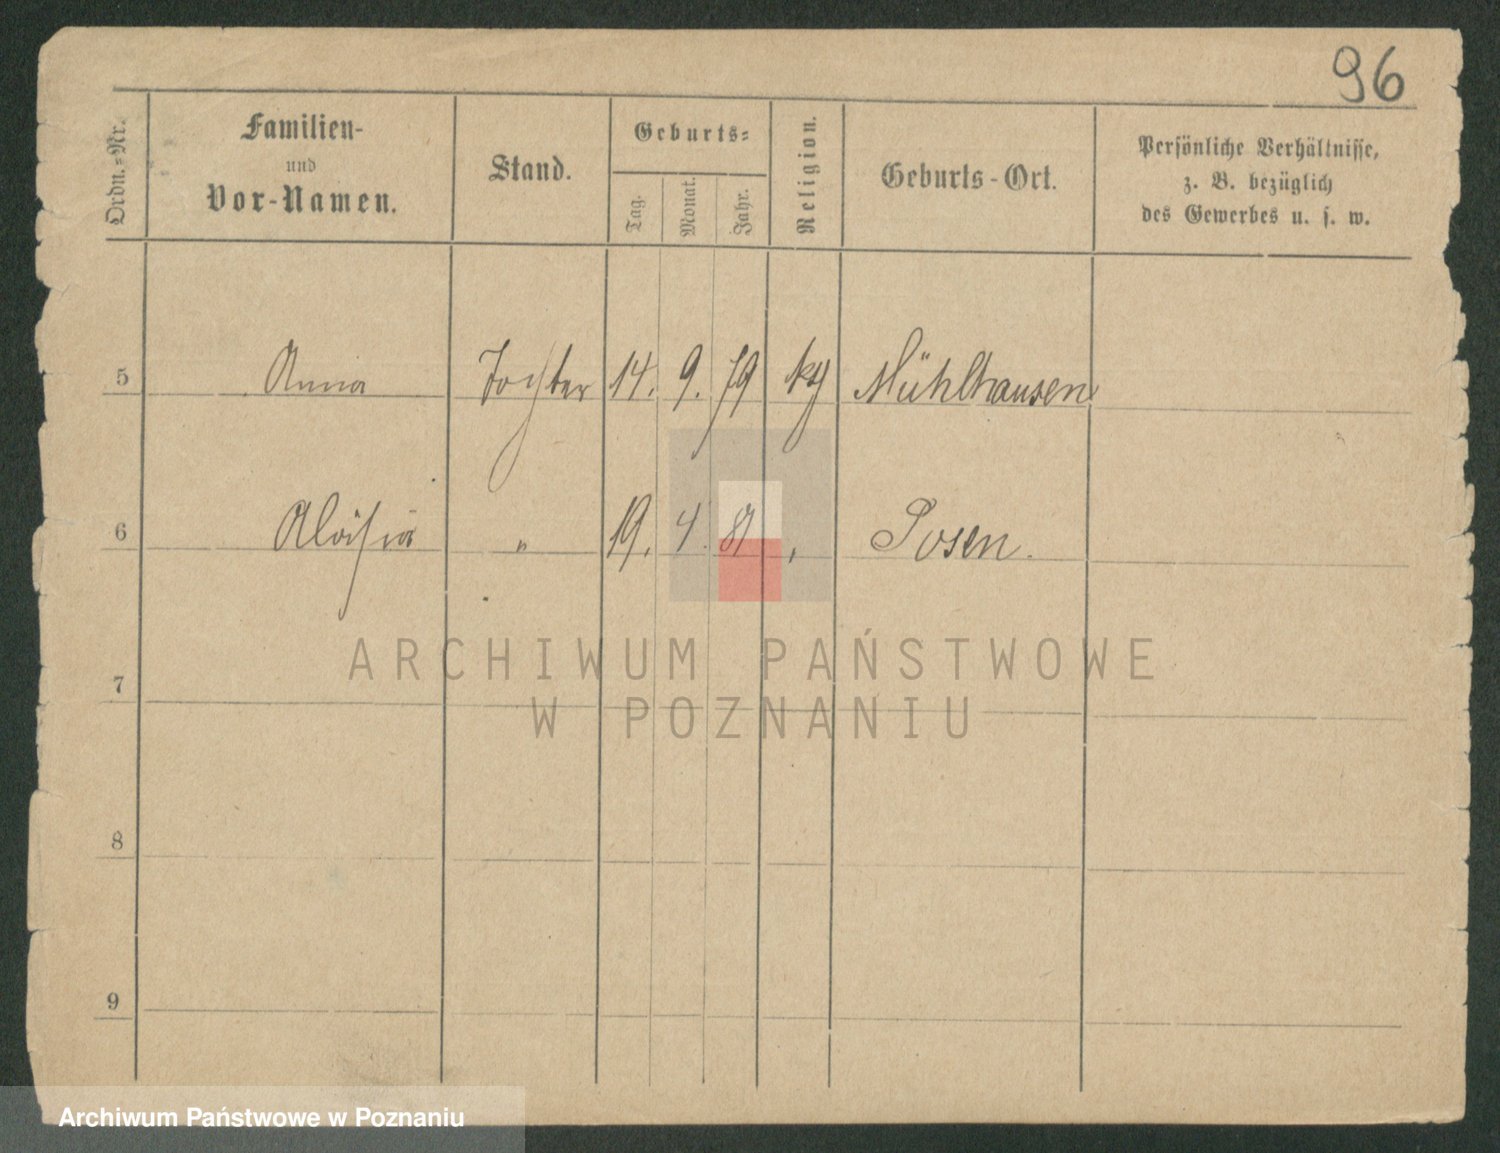 96
Ordn.-Nr.
Familien-
und
Vor-Namen.
Stand.
Geburts-
Tag.
Monat.
Jahr.
Religion.
Geburts-Ort.
Persönliche Verhältnisse,
z. B. bezüglich
des Gewerbes u. s. w.
5 Anna Tochter 14. 9. 79 Mühlhausen
6 Aloisia " 19. 4. " Posen.
7
8
9
ARCHIWUM PAŃSTWOWE
W POZNANIU
Archiwum Państwowe w Poznaniu